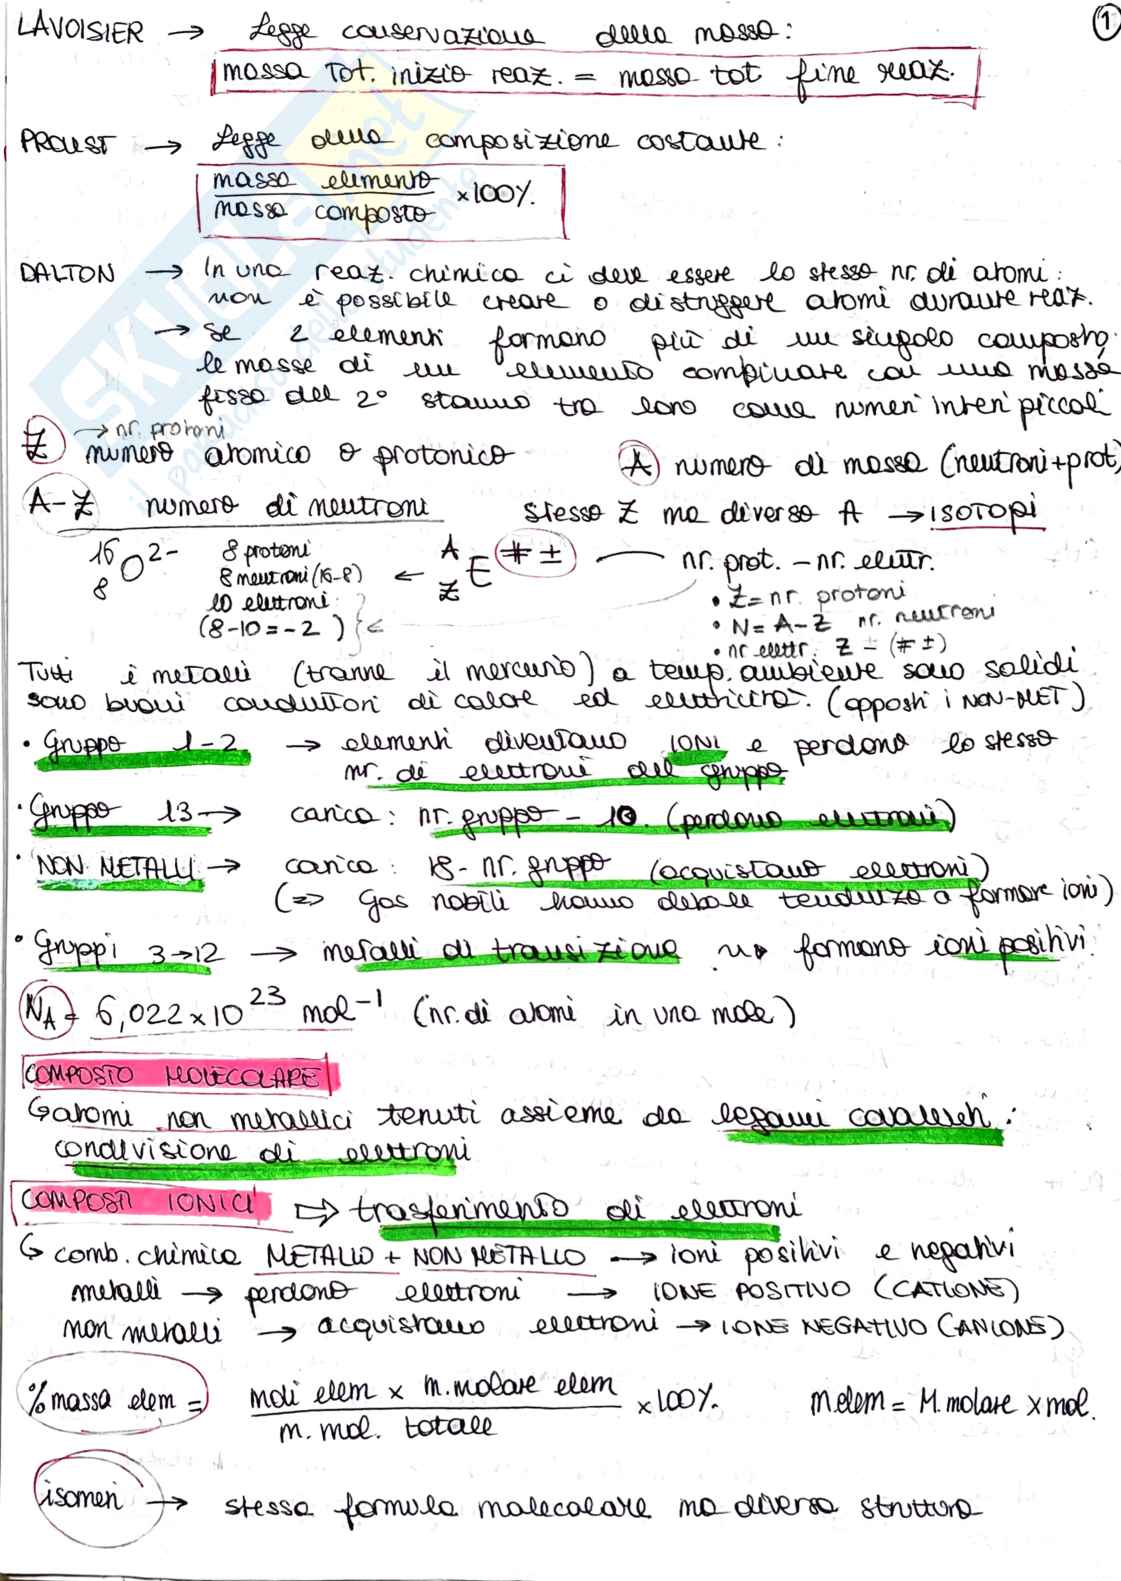 1
LAVOISIER → Legge conservazione della massa:
massa tot. inizio reaz. = massa tot fine reaz.
PROUST → Legge della composizione costante:
massa elemento
massa composto
×100%.
DALTON → In una reaz. chimica ci deve essere lo stesso nr. di atomi:
non è possibile creare o distruggere atomi durante reaz.
→ se 2 elementi formano più di un singolo composto,
le masse di un elemento combinate con una massa
fissa del 2° stanno tra loro come numeri interi piccoli
Z → nr. protoni
numero atomico o protonico
A numero di massa (neutroni+prot)
A-Z numero di neutroni
stesso Z ma diverso A → ISOTOPI
16 8 O 2-
8 protoni
8 neutroni (16-8)
10 elettroni
(8-10=-2)
← A Z E # ±
nr. prot. - nr. elettr.
• Z = nr. protoni
• N = A-Z nr. neutroni
• nr elettr. Z - (# ±)
Tutti i metalli (tranne il mercurio) a temp. ambiente sono solidi
sono buoni conduttori di calore ed elettricità. (opposti i NON-MET)
• Gruppo 1-2 → elementi diventano IONI e perdono lo stesso
nr. di elettroni del gruppo
• Gruppo 13 → carica: nr. gruppo - 10. (perdono elettroni)
• NON METALLI → carica: 18 - nr. gruppo (acquistano elettroni)
(=> Gas nobili hanno debole tendenza a formare ioni)
• Gruppi 3→12 → metalli di transizione ~> formano ioni positivi.
NA = 6,022 × 10 23 mol -1 (nr. di atomi in una mole)
COMPOSTO MOLECOLARE
↳ atomi non metallici tenuti assieme da legami covalenti:
condivisione di elettroni
COMPOSTI IONICI ⇨ trasferimento di elettroni
↳ comb. chimica METALLO + NON METALLO → ioni positivi e negativi
metalli → perdono elettroni → IONE POSITIVO (CATIONE)
non metalli → acquistano elettroni → IONE NEGATIVO (ANIONE)
% massa elem =
moli elem × m. molare elem
m. mol. totale
×100%.
m elem = M. molare × mol.
isomeri → stessa formula molecolare ma diversa struttura
SKUOLA.net